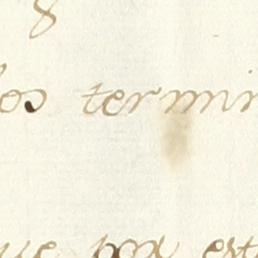 8
los termin
que por est